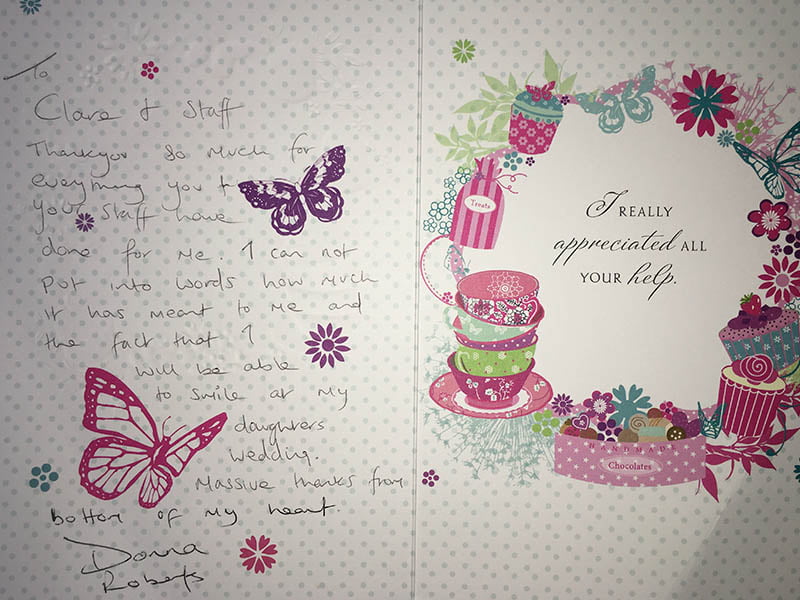 To
Clare & Staff
Thankyou so much for
everything you &
your staff have
done for me. I can not
put into words how much
it has meant to me and
the fact that I
will be able
to smile at my
daughters
wedding.
Massive thanks from
bottom of my heart.
Donna
Roberts
Treats
I REALLY
appreciated ALL
YOUR help.
HANDMADE
Chocolates